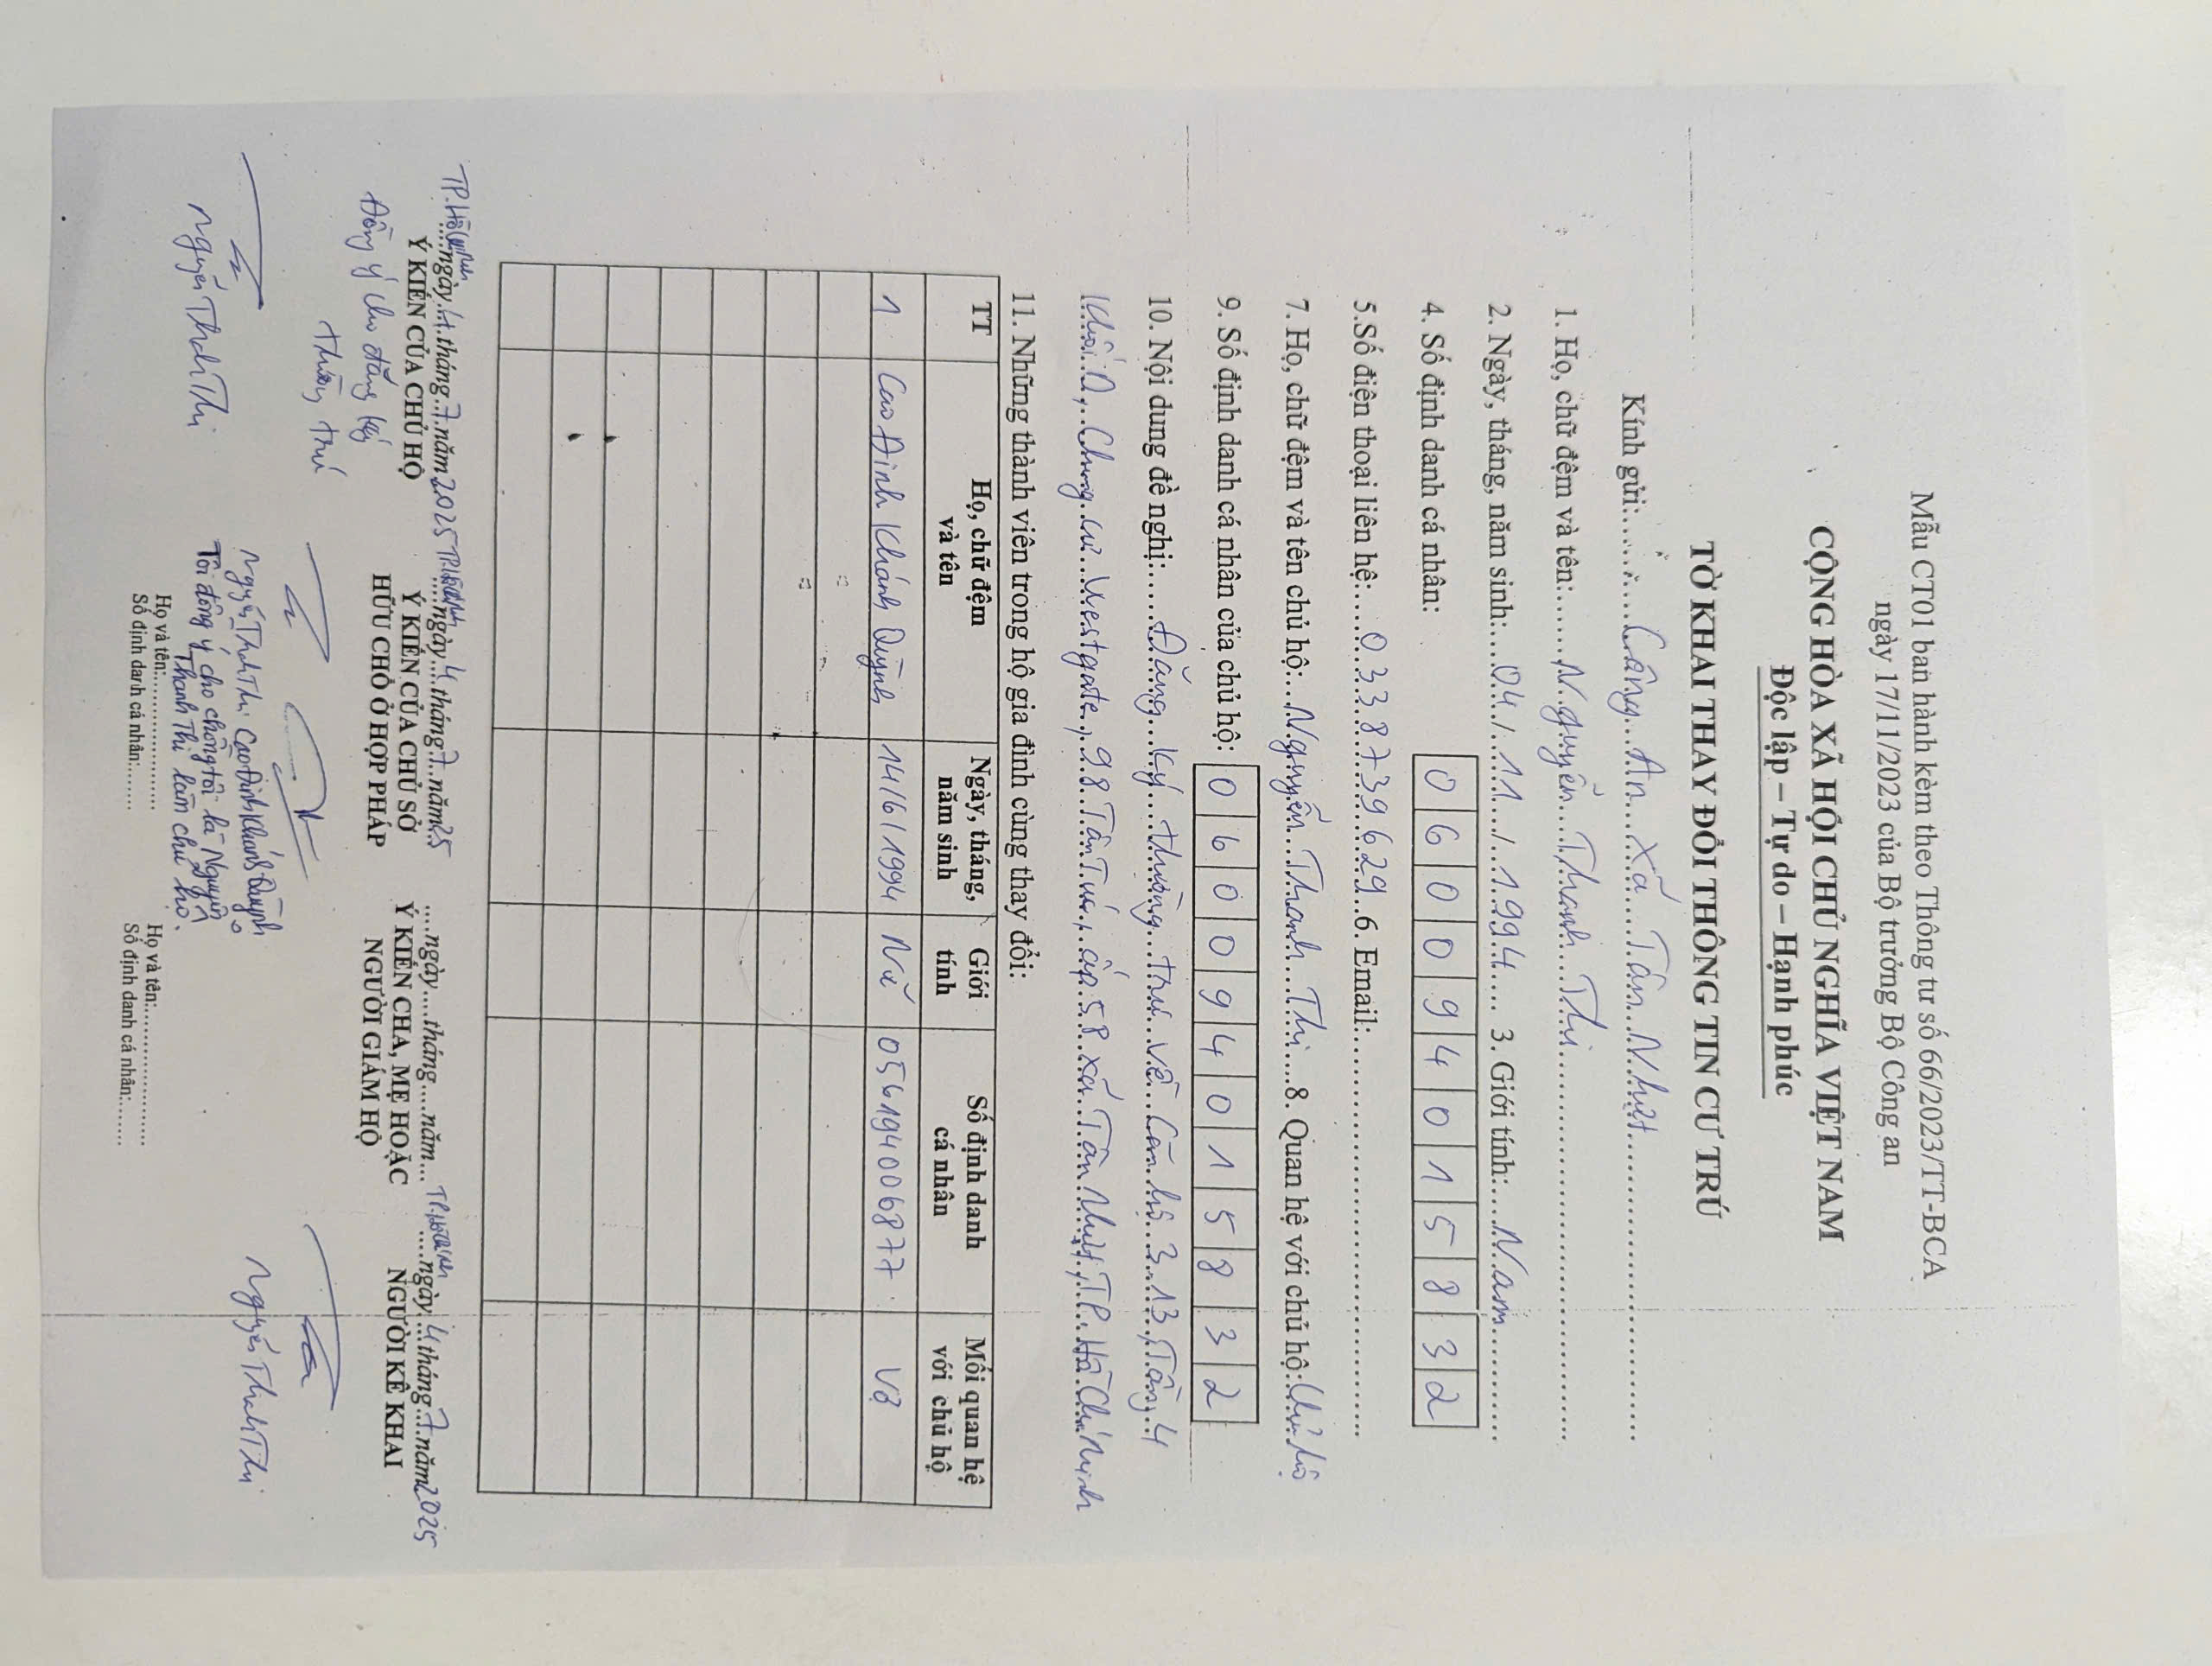 Mẫu CT01 ban hành kèm theo Thông tư số 66/2023/TT-BCA
ngày 17/11/2023 của Bộ trưởng Bộ Công an
CỘNG HÒA XÃ HỘI CHỦ NGHĨA VIỆT NAM
Độc lập – Tự do – Hạnh phúc
TỜ KHAI THAY ĐỔI THÔNG TIN CƯ TRÚ
Kính gửi:........Công..An...xã....Tân..Nhựt..............................
1. Họ, chữ đệm và tên:......Nguyễn...Thanh...Thi..............................
2. Ngày, tháng, năm sinh:...04../...11.../...1994.... 3. Giới tính:....Nam............
4. Số định danh cá nhân: 0 6 0 0 9 4 0 1 5 8 3 2
5.Số điện thoại liên hệ:....0338739629..6. Email:..............................
7. Họ, chữ đệm và tên chủ hộ:...Nguyễn...Thanh...Thi....8. Quan hệ với chủ hộ:Chủ hộ
9. Số định danh cá nhân của chủ hộ: 0 6 0 0 9 4 0 1 5 8 3 2
10. Nội dung đề nghị:.....Đăng...ký...thường...trú...về...Căn hộ...3.13,Tầng.4
Khối.A,..Chung.cư...Westgate,.98.Tân Túc,.ấp.5.8.xã..Tân.Nhựt,.TP.Hồ.Chí Minh
11. Những thành viên trong hộ gia đình cùng thay đổi:
TT Họ, chữ đệm và tên Ngày, tháng, năm sinh Giới tính Số định danh cá nhân Mối quan hệ với chủ hộ
1 Cao Đinh Khánh Quỳnh 14/6/1994 Nữ 056194006877 Vợ
TP.Hồ Chí Minh....ngày.4.tháng.7.năm2025 TP.Hồ Chí Minh....ngày..4..tháng.7..năm25 ....ngày.....tháng.....năm.... TP.Hồ Chí Minh....ngày..4.tháng.7.năm2025
Ý KIẾN CỦA CHỦ HỘ Ý KIẾN CỦA CHỦ SỞ HỮU CHỖ Ở HỢP PHÁP Ý KIẾN CHA, MẸ HOẶC NGƯỜI GIÁM HỘ NGƯỜI KÊ KHAI
Đồng ý cho đăng ký
thường trú
Nguyễn Thanh Thi
Nguyễn Thanh Thi Cao Đinh Khánh Quỳnh
Tôi đồng ý cho chồng tôi là Nguyễn
Thanh Thi làm chủ hộ.
Họ và tên:.....................
Số định danh cá nhân:.......
Họ và tên:.....................
Số định danh cá nhân:.......
Nguyễn Thanh Thi